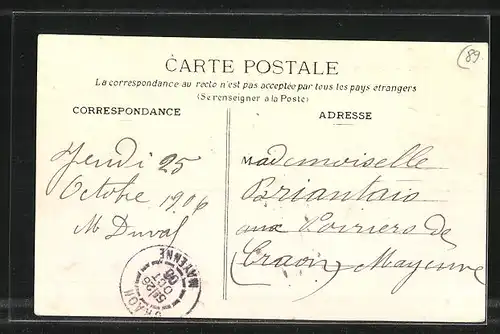 89
CARTE POSTALE
La correspondance au recto n'est pas acceptée par tous les pays étrangers
(Se renseigner à la Poste)
CORRESPONDANCE
ADRESSE
Jeudi 25
Octobre 1906
M Duval
Mademoiselle
Briantais
aux Poiriers de
(Craon) Mayenne
CRAON
MAYENNE
26
OCT
06